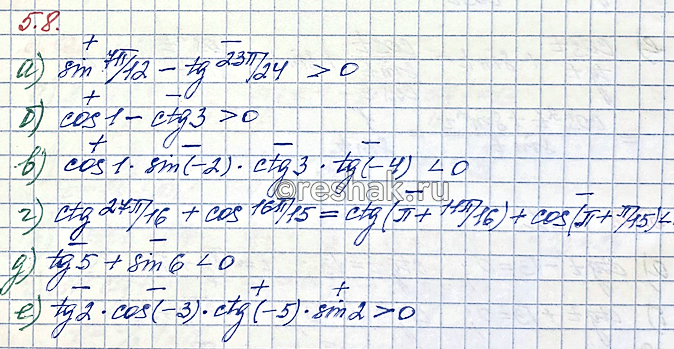 5.8.
а) sin 7π/12 - tg 23π/24 > 0
б) cos1 - ctg3 > 0
в) cos1 · sin(-2) · ctg3 · tg(-4) < 0
©reshak.ru
г) ctg 27π/16 + cos 16π/15 = ctg(π + 11π/16) + cos(π + π/15) <
д) tg5 + sin6 < 0
е) tg2 · cos(-3) · ctg(-5) · sin2 > 0